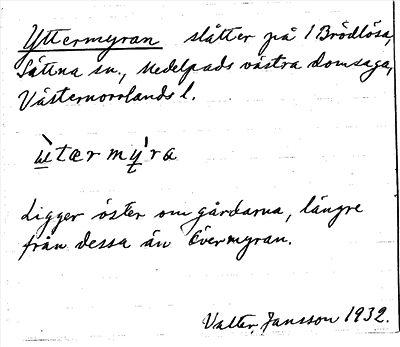 Yttermyran slåtter på 1 Brödlösa,
Sättna sn., Medelpads västra domsaga,
Västernorrlands l.
ùtærmýra
Ligger öster om gårdarna, längre
från dessa än Övermyran.
Valter Jansson 1932.